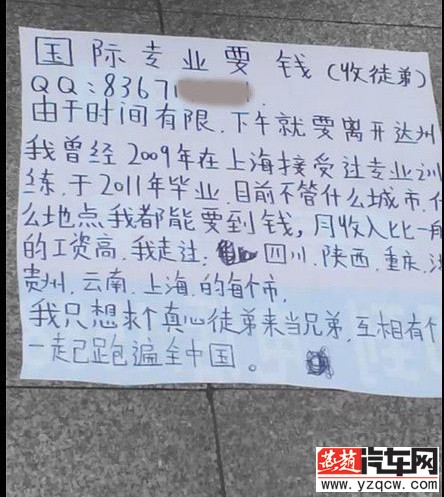 国际专业要钱(收徒弟)
QQ:8367
由于时间有限.下午就要离开达州
我曾经2009年在上海接受过专业训
练.于2011年毕业.目前不管什么城市.什
么地点.我都能要到钱,月收入比一般
的工资高.我走过: 四川.陕西.重庆.
贵州.云南.上海.的每个市.
我只想求个真心徒弟来当兄弟.互相有个
一走已跑遍全中国。
燕赵汽车网
www.yzqcw.com